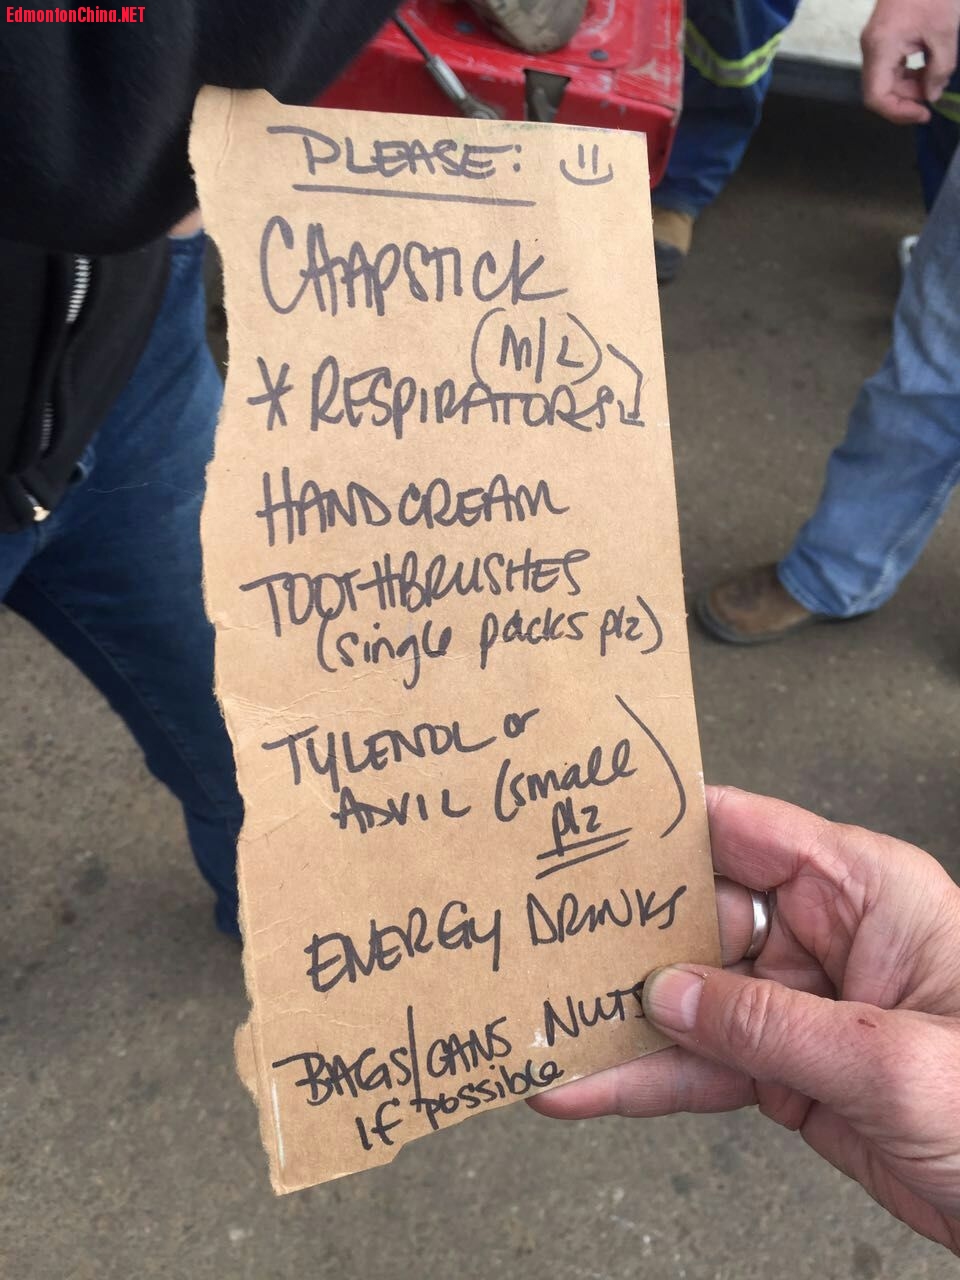 EdmontonChina.NET
PLEASE:
CHAPSTICK
(M/L)
* RESPIRATORS
HAND CREAM
TOOTHBRUSHES
(single packs plz)
TYLENOL or
ADVIL (small
plz)
ENERGY DRINKS
BAGS/CANS NUTS
IF possible